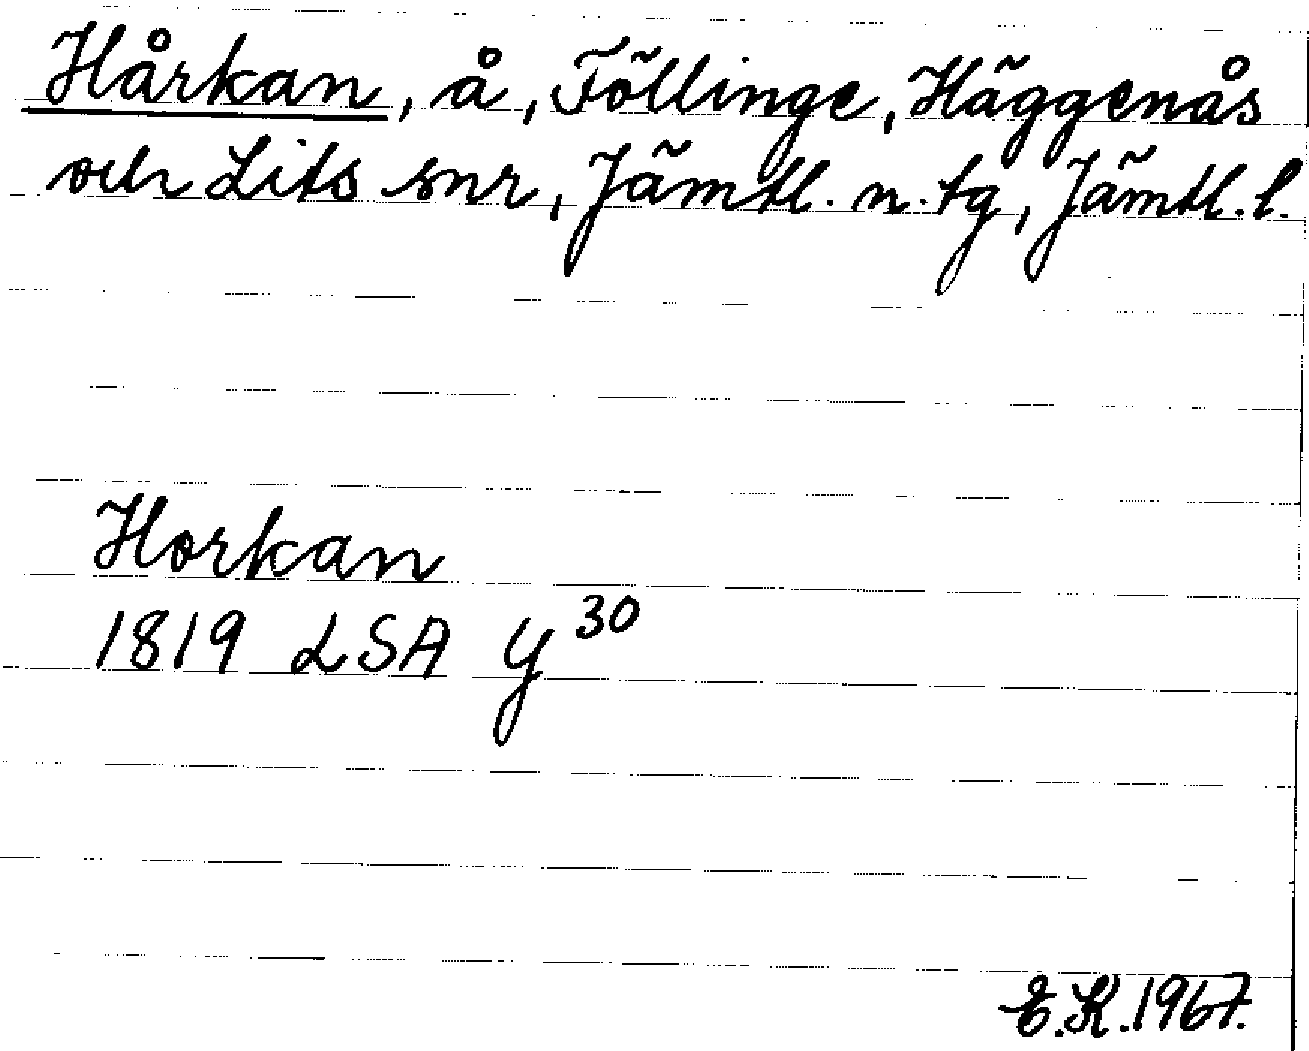 Hårkan, å, Föllinge, Häggenås
och Lits snr, Jämtl. n. tg, Jämtl. l.
Horkan
1819 LSA Y 30
E.K. 1967.